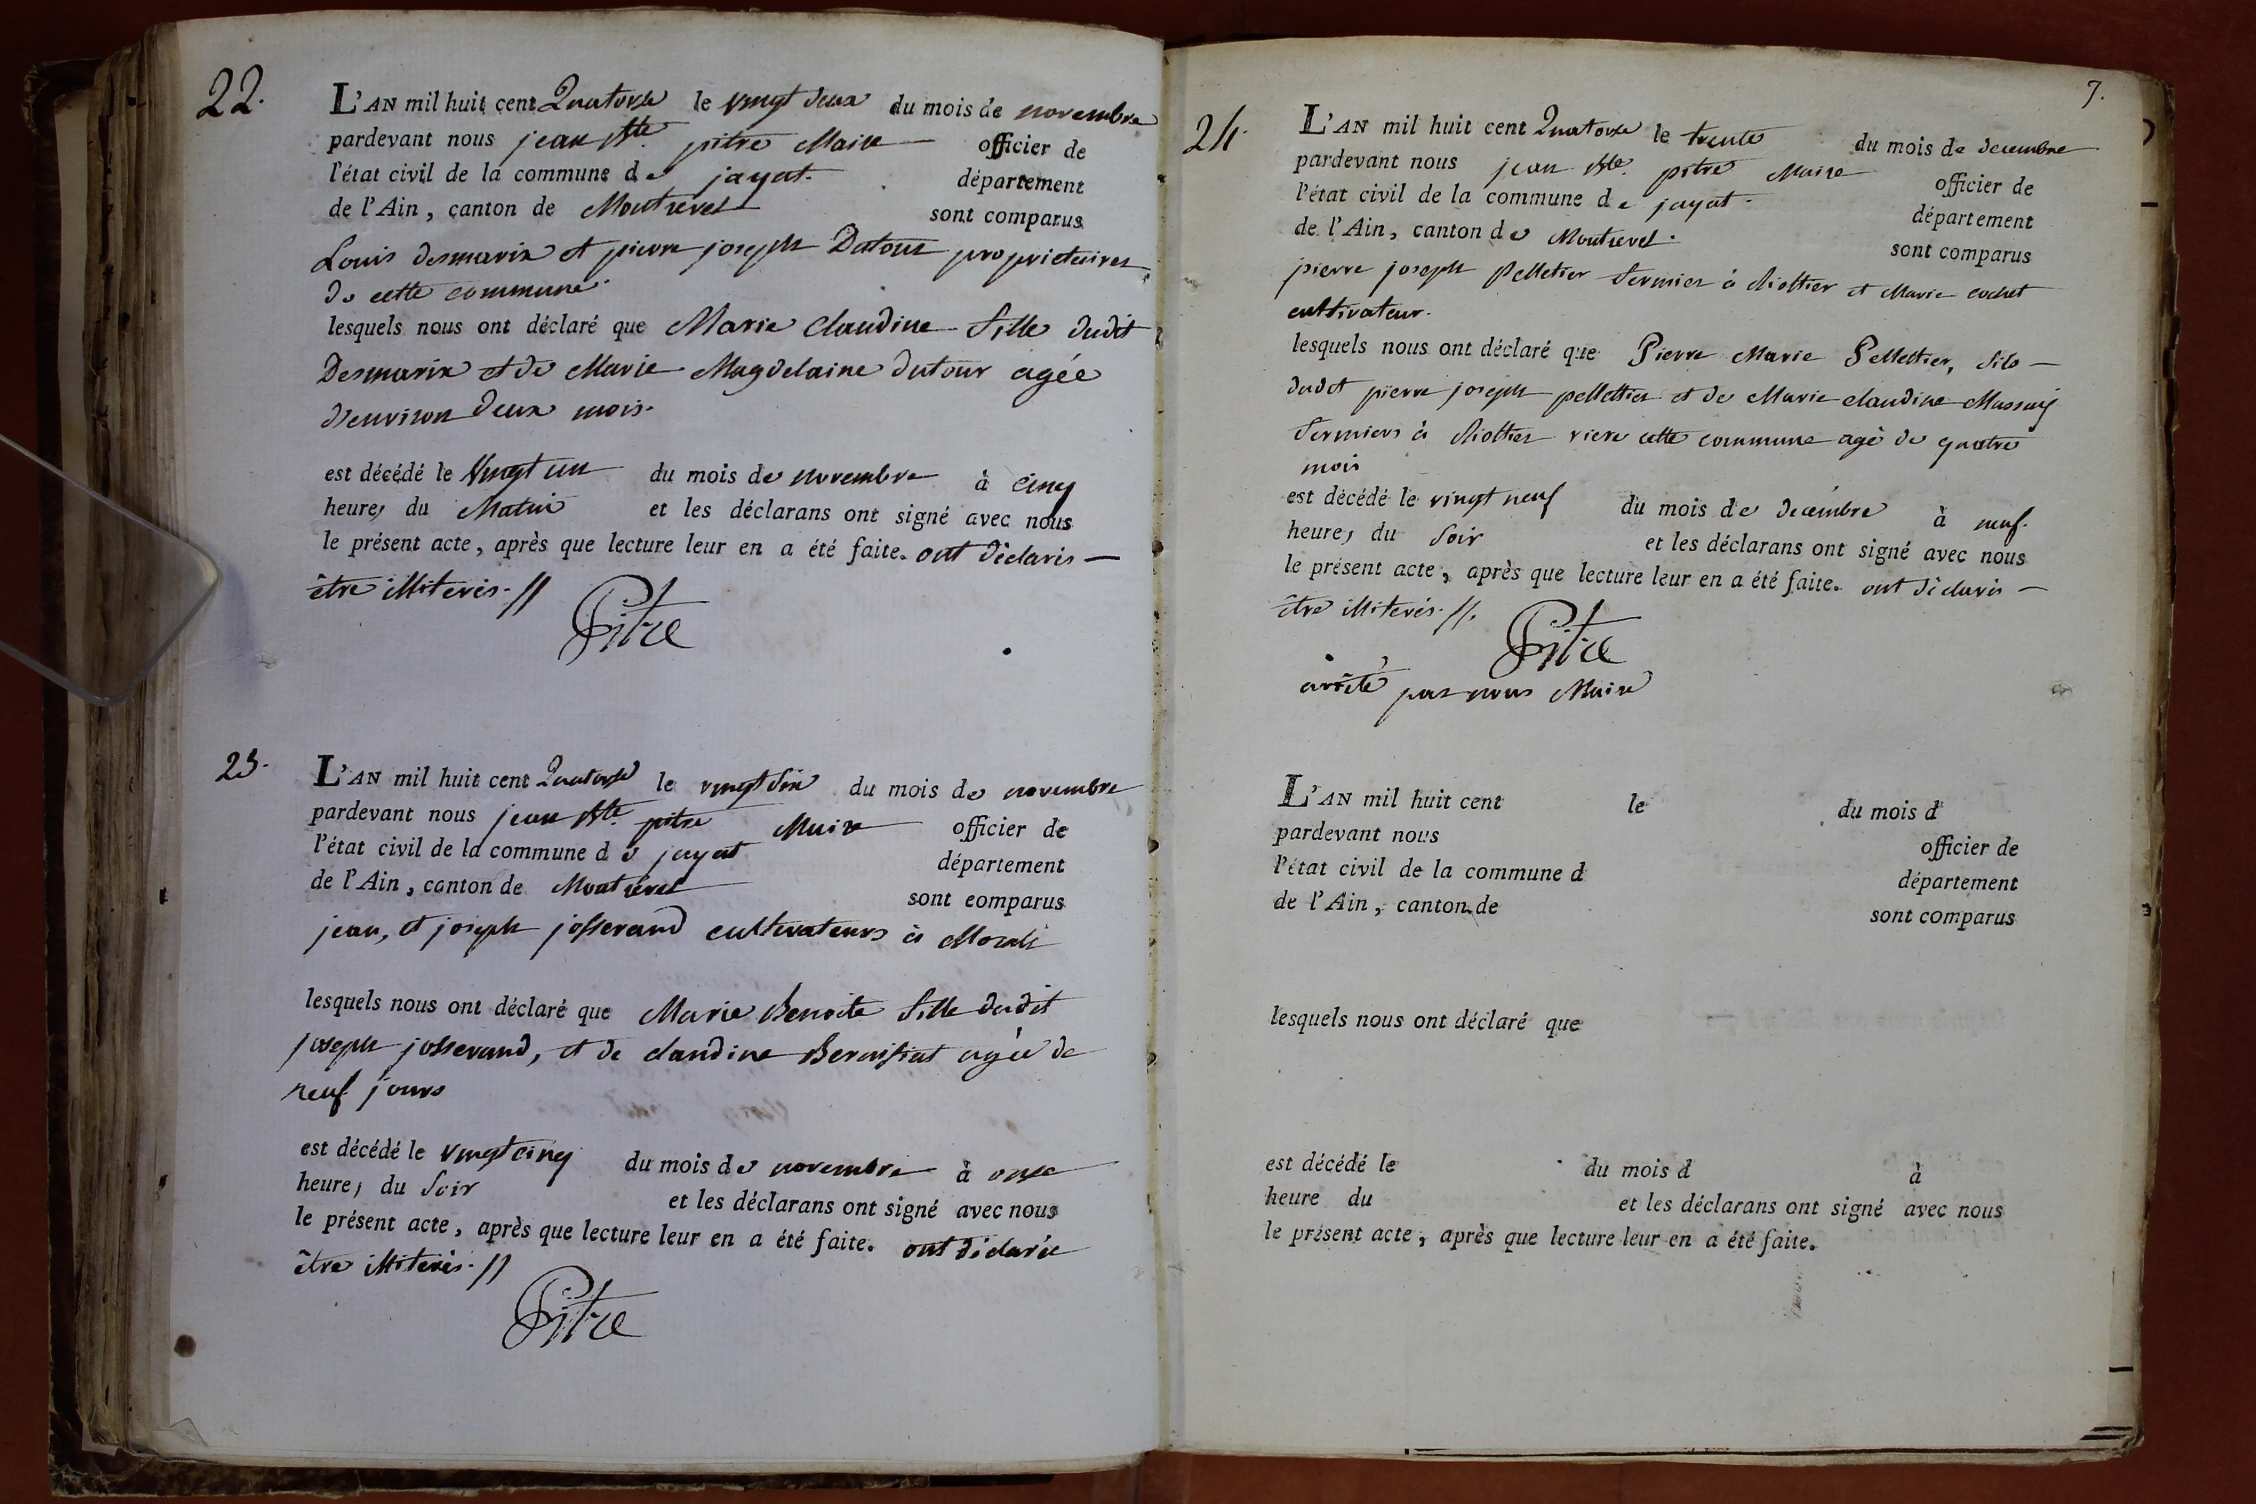 22.
L'AN mil huit cent Quatorze le vingt deux du mois de novembre
pardevant nous jean Bte. pitre Maire officier de
l'état civil de la commune de jayat. département
de l'Ain, canton de Montrevel sont comparus
Louis desmarix et pierre joseph Dutour proprietaires
de cette commune.
lesquels nous ont déclaré que Marie Claudine fille dudit
Desmarix et de Marie Magdelaine dutour agée
d'environ deux mois.
est décédé le Vingt un du mois de novembre à cinq
heures du Matin et les déclarans ont signé avec nous
le présent acte, après que lecture leur en a été faite. ont déclarés
être illiterés. //
Pitre
23.
L'AN mil huit cent Quatorze le vingt six du mois de novembre
pardevant nous jean Bte. pitre Maire officier de
l'état civil de la commune de jayat département
de l'Ain, canton de Montrevel sont comparus
jean, et joseph josserand cultivateurs à
lesquels nous ont déclaré que Marie Benoite fille dudit
joseph josserand, et de claudine agée de
neuf jours
est décédé le vingt cinq du mois de novembre à onze
heures du soir et les déclarans ont signé avec nous
le présent acte, après que lecture leur en a été faite. ont déclarés
être illiterés. //
Pitre
7.
24.
L'AN mil huit cent Quatorze le trente du mois de decembre
pardevant nous jean Bte. pitre Maire officier de
l'état civil de la commune de jayat. département
de l'Ain, canton de Montrevel. sont comparus
pierre joseph Pelletier fermier à et Marie cochet
cultivateur.
lesquels nous ont déclaré que Pierre Marie Pellettier, fils
dudit pierre joseph pellettier et de Marie claudine
fermiers à riere cette commune agé de quatre
mois
est décédé le vingt neuf du mois de decembre à neuf.
heures du soir et les déclarans ont signé avec nous
le présent acte, après que lecture leur en a été faite. ont déclarés
être illiterés. //.
Pitre
arrêté par nous Maire
L'AN mil huit cent le du mois d
pardevant nous officier de
l'état civil de la commune d département
de l'Ain, canton de sont comparus
lesquels nous ont déclaré que
est décédé le du mois d à
heure du et les déclarans ont signé avec nous
le présent acte, après que lecture leur en a été faite.